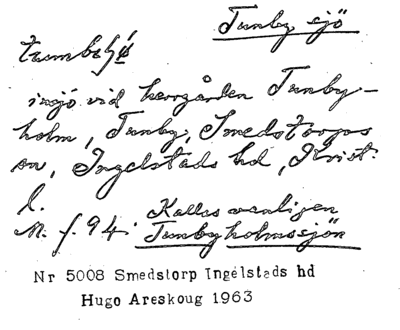 Tunby sjö
insjö vid herrgården Tunby-
holm, Tunby, Smedstorps
sn, Ingelstads hd, Krist.
l.
Kallas vanligen
M. f. 94. Tunbyholmssjön
Nr 5008 Smedstorp Ingelstads hd
Hugo Areskoug 1963